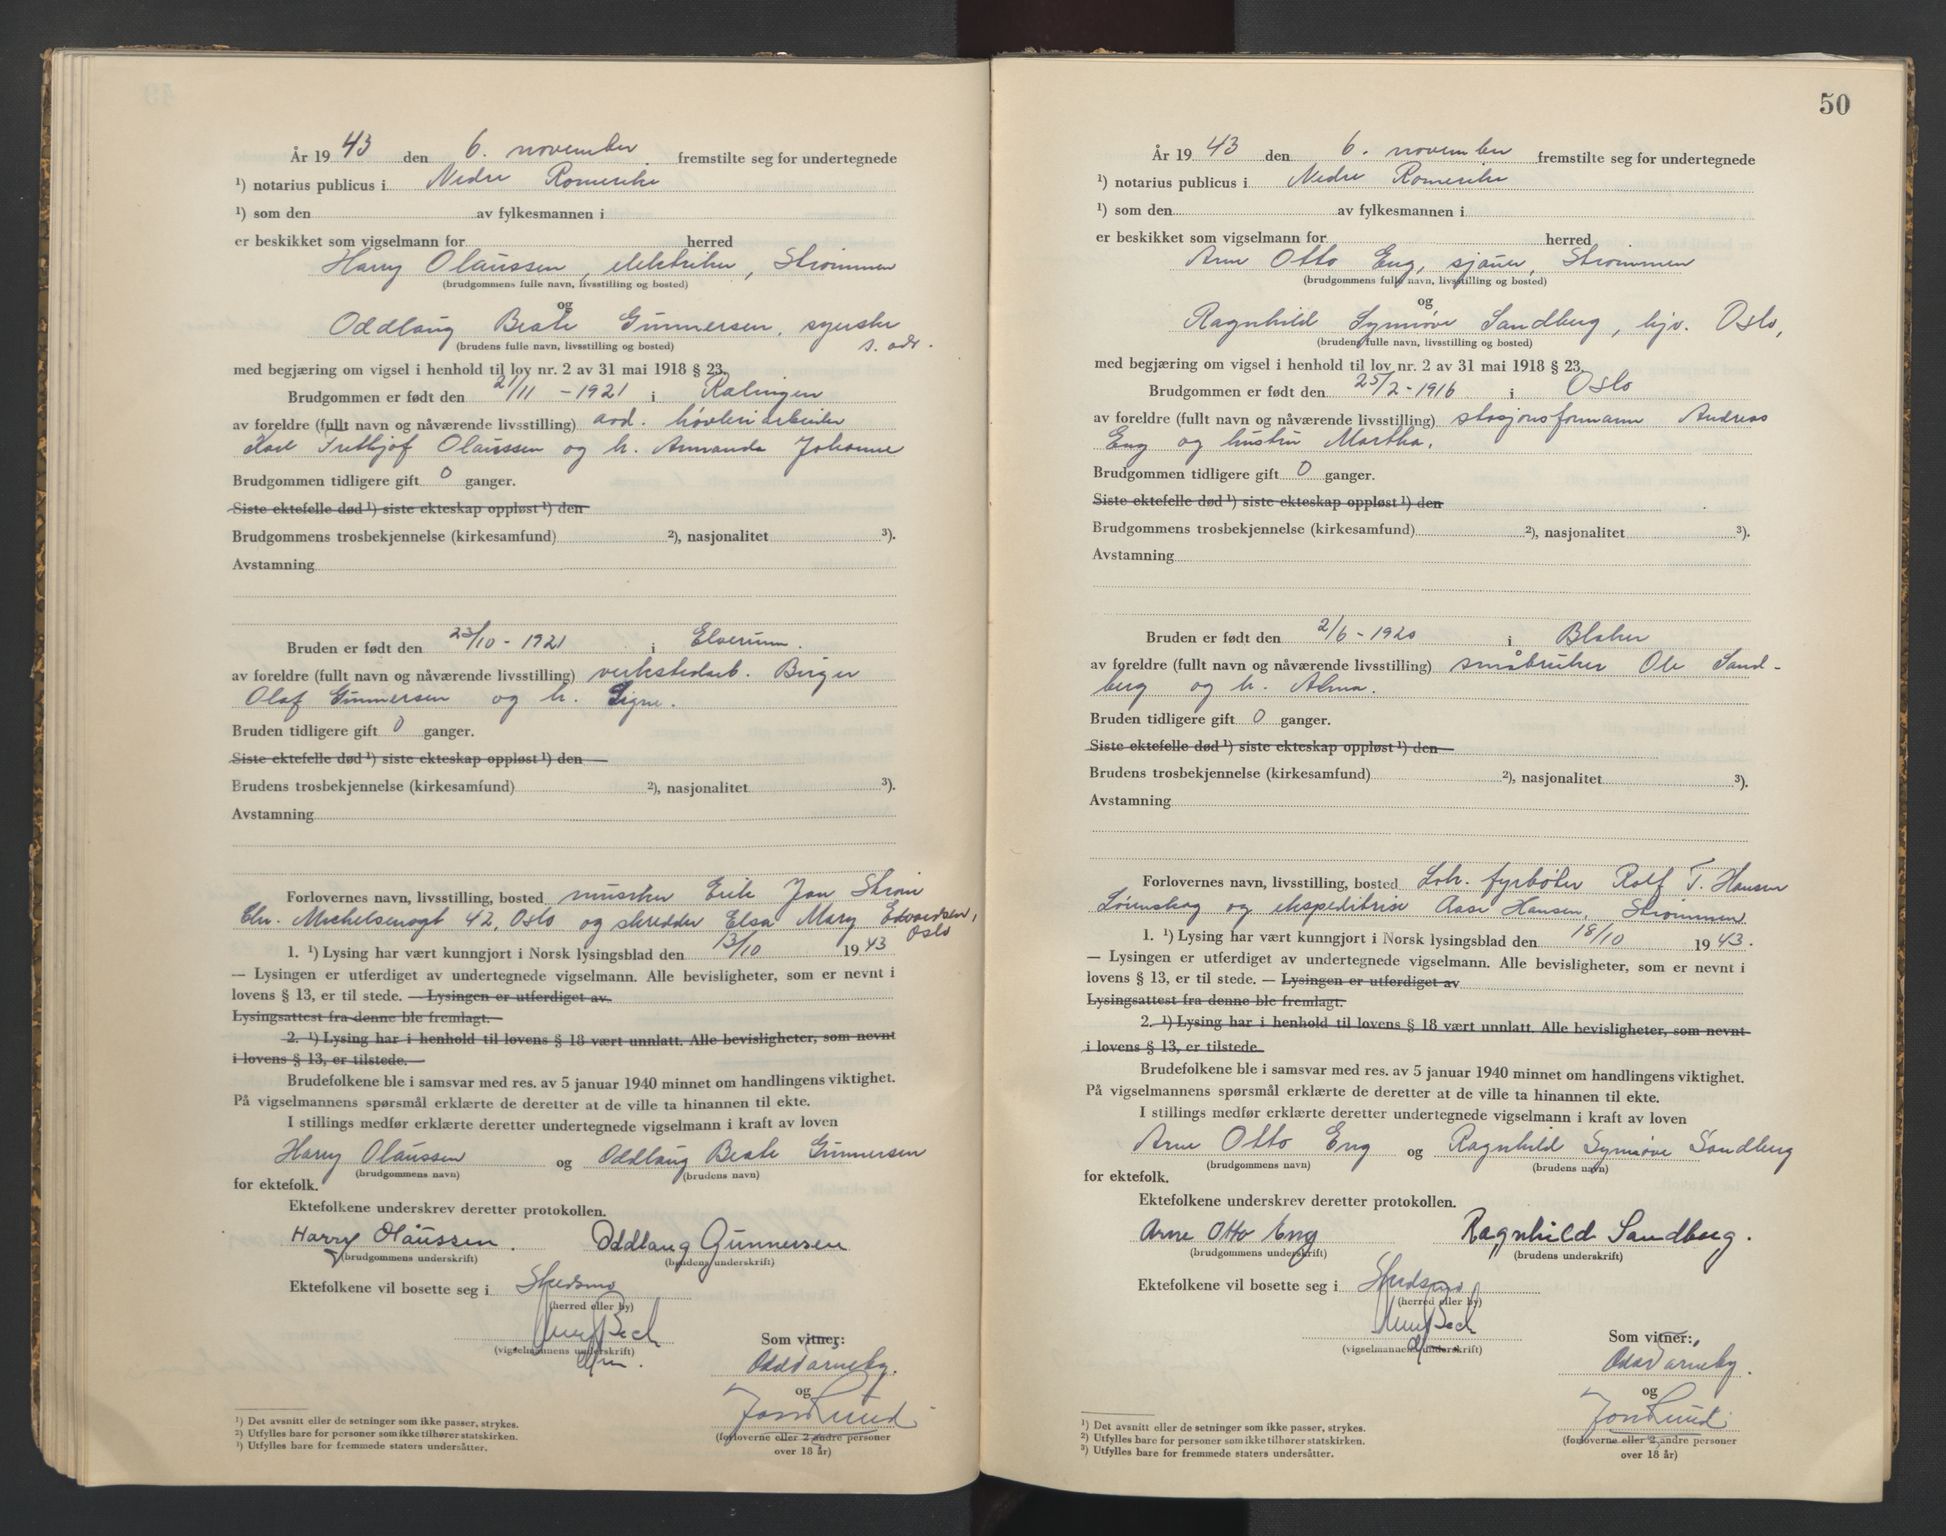 År 19 43 den 6. november fremstilte seg for undertegnede
¹) notarius publicus i Nedre Romerike
¹) som den av fylkesmannen i
er beskikket som vigselmann for herred
Harry Olaussen, elektriker, Strømmen
(brudgommens fulle navn, livsstilling og bosted)
og
Oddlaug Beate Gunnersen, syerske
s. adr.
(brudens fulle navn, livsstilling og bosted)
med begjæring om vigsel i henhold til lov nr. 2 av 31 mai 1918 § 23.
Brudgommen er født den 21/11 - 1921 i Rælingen
av foreldre (fullt navn og nåværende livsstilling) avd. høvleriarbeider
Karl Frithjof Olaussen og h. Amanda Johanne
Brudgommen tidligere gift 0 ganger.
Siste ektefelle død ¹) siste ekteskap oppløst ¹) den
Brudgommens trosbekjennelse (kirkesamfund) ²), nasjonalitet ³).
Avstamning
Bruden er født den 23/10 - 1921 i Elverum.
av foreldre (fullt navn og nåværende livsstilling) verkstedarb. Birger
Olaf Gunnersen og h. Signe.
Bruden tidligere gift 0 ganger.
Siste ektefelle død ¹) siste ekteskap oppløst ¹) den
Brudens trosbekjennelse (kirkesamfund) ²), nasjonalitet ³).
Avstamning
Forlovernes navn, livsstilling, bosted musiker Erik Jan Strøm
Chr. Michelsensgt 42, Oslo og skredder Elsa Mary Edvardsen,
Oslo
1. ¹) Lysing har vært kunngjort i Norsk lysingsblad den 13/10 19 43
— Lysingen er utferdiget av undertegnede vigselmann. Alle bevisligheter, som er nevnt i
lovens § 13, er til stede. — Lysingen er utferdiget av
Lysingsattest fra denne ble fremlagt.
2. ¹) Lysing har i henhold til lovens § 18 vært unnlatt. Alle bevisligheter, som nevnt
i lovens § 13, er tilstede.
Brudefolkene ble i samsvar med res. av 5 januar 1940 minnet om handlingens viktighet.
På vigselmannens spørsmål erklærte de deretter at de ville ta hinannen til ekte.
I stillings medfør erklærte deretter undertegnede vigselmann i kraft av loven
Harry Olaussen og Oddlaug Beate Gunnersen
(brudgommens navn) (brudens navn)
for ektefolk.
Ektefolkene underskrev deretter protokollen.
Harry Olaussen. Oddlaug Gunnersen
(brudgommens underskrift) (brudens underskrift)
Ektefolkene vil bosette seg i Skedsmo
(herred eller by)
Som vitner:
(vigselmannens underskrift)
og
Jon Lund
(forloverne eller 2 andre personer
over 18 år)
¹) Det avsnitt eller de setninger som ikke passer, strykes.
²) Utfylles bare for personer som ikke tilhører statskirken.
³) Utfylles bare for fremmede staters undersåtter.
50
År 19 43 den 6. november fremstilte seg for undertegnede
¹) notarius publicus i Nedre Romerike
¹) som den av fylkesmannen i
er beskikket som vigselmann for herred
Arne Otto Eng, sjauer, Strømmen
(brudgommens fulle navn, livsstilling og bosted)
og
Ragnhild Synnøve Sandberg, hjv. Oslo,
(brudens fulle navn, livsstilling og bosted)
med begjæring om vigsel i henhold til lov nr. 2 av 31 mai 1918 § 23.
Brudgommen er født den 25/2 - 1916 i Oslo
av foreldre (fullt navn og nåværende livsstilling) stasjonsformann Andreas
Eng og hustru Martha.
Brudgommen tidligere gift 0 ganger.
Siste ektefelle død ¹) siste ekteskap oppløst ¹) den
Brudgommens trosbekjennelse (kirkesamfund) ²), nasjonalitet ³).
Avstamning
Bruden er født den 2/6 - 1920 i Blaker
av foreldre (fullt navn og nåværende livsstilling) småbruker Ole Sand-
berg og h. Alma.
Bruden tidligere gift 0 ganger.
Siste ektefelle død ¹) siste ekteskap oppløst ¹) den
Brudens trosbekjennelse (kirkesamfund) ²), nasjonalitet ³).
Avstamning
Forlovernes navn, livsstilling, bosted Lok. fyrbøter Rolf T. Hansen
Lørenskog og ekspeditrise Aase Hansen, Strømmen
1. ¹) Lysing har vært kunngjort i Norsk lysingsblad den 18/10 19 43.
— Lysingen er utferdiget av undertegnede vigselmann. Alle bevisligheter, som er nevnt i
lovens § 13, er til stede. — Lysingen er utferdiget av
Lysingsattest fra denne ble fremlagt.
2. ¹) Lysing har i henhold til lovens § 18 vært unnlatt. Alle bevisligheter, som nevnt
i lovens § 13, er tilstede.
Brudefolkene ble i samsvar med res. av 5 januar 1940 minnet om handlingens viktighet.
På vigselmannens spørsmål erklærte de deretter at de ville ta hinannen til ekte.
I stillings medfør erklærte deretter undertegnede vigselmann i kraft av loven
Arne Otto Eng og Ragnhild Synnøve Sandberg
(brudgommens navn) (brudens navn)
for ektefolk.
Ektefolkene underskrev deretter protokollen.
Arne Otto Eng Ragnhild Sandberg.
(brudgommens underskrift) (brudens underskrift)
Ektefolkene vil bosette seg i Skedsmo
(herred eller by)
Som vitner:
(vigselmannens underskrift)
og
Jon Lund
(forloverne eller 2 andre personer
over 18 år)
¹) Det avsnitt eller de setninger som ikke passer, strykes.
²) Utfylles bare for personer som ikke tilhører statskirken.
³) Utfylles bare for fremmede staters undersåtter.